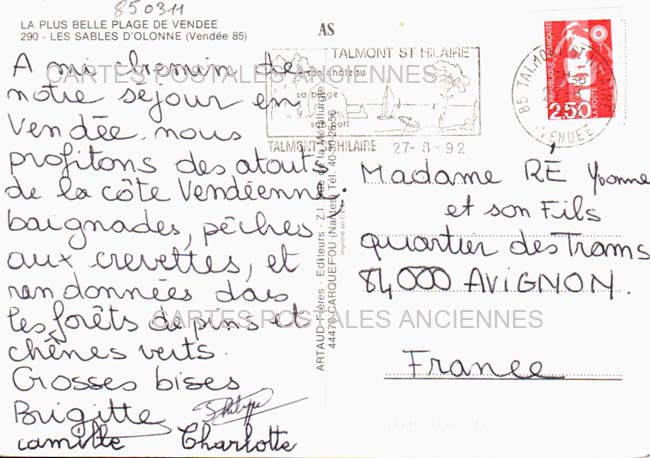 850311
LA PLUS BELLE PLAGE DE VENDEE
290 - LES SABLES D'OLONNE (Vendée 85)
AS
A mi chemin de
notre séjour en
Vendée, nous
profitons des atouts
de la côte Vendéenne :
baignades, pêches
aux crevettes, et
randonnées dans
les forêts de pins et
chênes verts.
Grosses bises
Brigitte Philippe
Camille Charlotte
ARTAUD Frères - Editeurs - Z.I. rue de la Métallurgie
44470 CARQUEFOU (Nantes) Tél. 40-30-26-56
Imprimé en C.E.E.
TALMONT ST HILAIRE
son château
sa plage
son port
TALMONT ST HILAIRE 27-8-92
85 TALMONT ST HILAIRE
VENDEE
REPUBLIQUE FRANÇAISE
2,50
LA POSTE
Madame RÉ Yvonne
et son Fils
quartier des Trams
84000 AVIGNON.
France
CARTES POSTALES ANCIENNES
CARTES POSTALES ANCIENNES